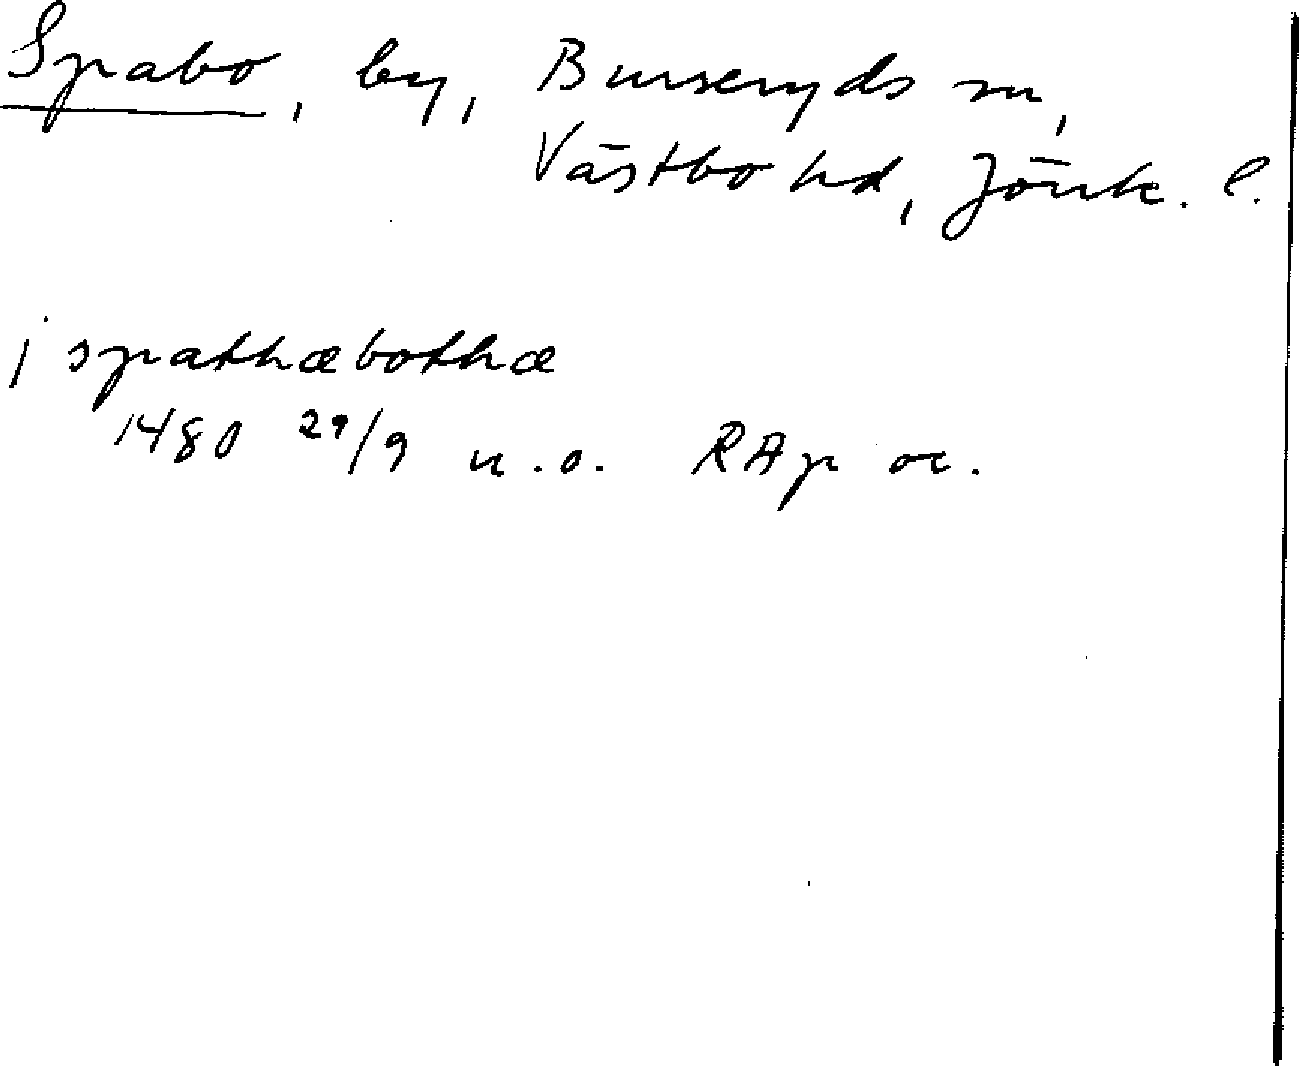 Spabo, by, Burseryds sn,
Västbo hd, Jönk. l.
j spathæbothæ
1480 29/9 u.o. RAp or.